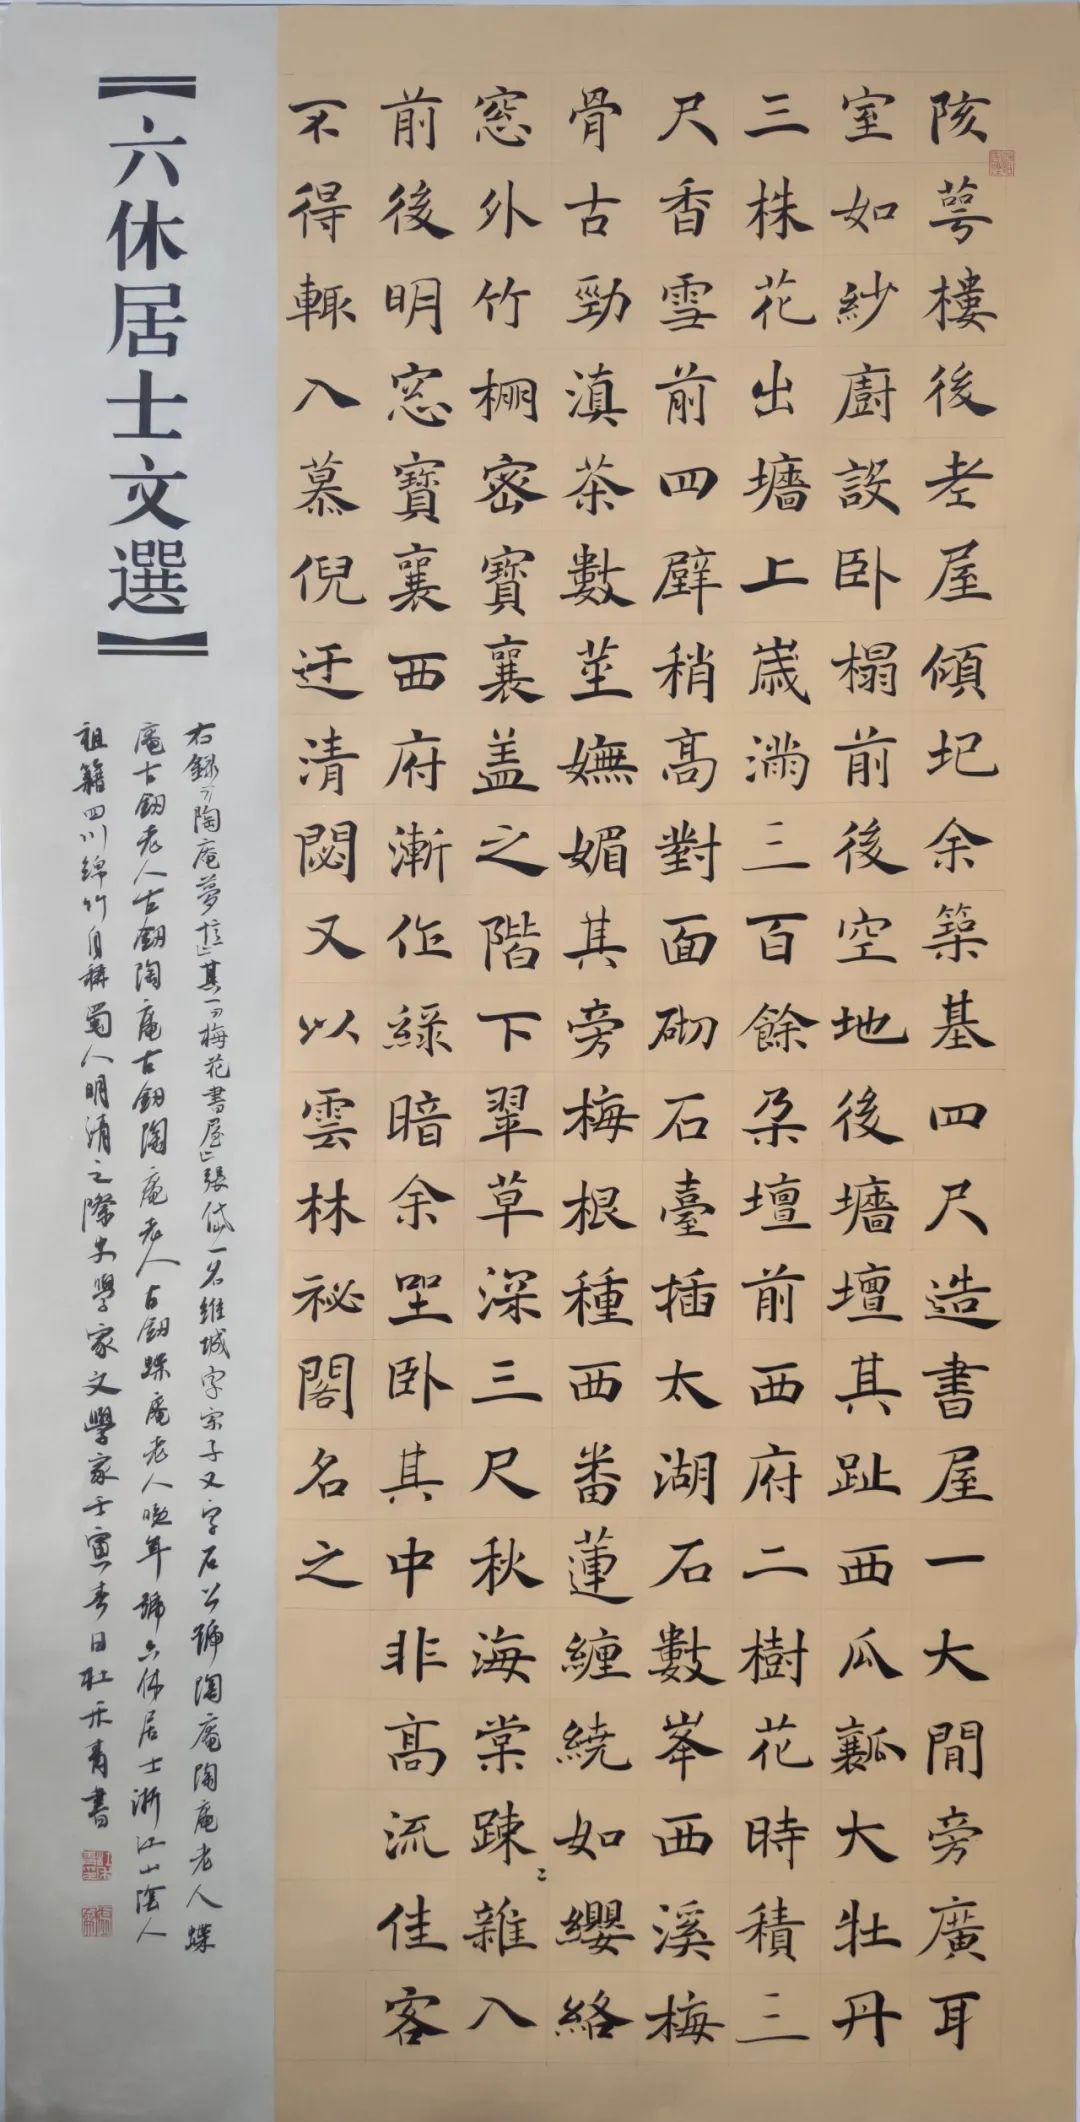 陔萼樓後老屋傾圮余築基四尺造書屋一大閒旁廣耳
室如紗廚設卧榻前後空地後墻壇其趾西瓜瓤大牡丹
三株花出墻上歲滿三百餘朶壇前西府二樹花時積三
尺香雪前四壁稍高對面砌石臺插太湖石數峯西溪梅
骨古勁滇茶數莖嫵媚其旁梅根種西番蓮纏繞如纓絡
窓外竹棚密寳襄盖之階下翠草深三尺秋海棠踈〻雜入
前後明窓寳襄西府漸作綠暗余坐卧其中非高流佳客
不得輒入慕倪迂清閟又以雲林祕閣名之
【六休居士文選】
右錄「陶庵夢憶」其一「梅花書屋」張岱一名維城字宗子又字石公號陶庵陶庵老人蝶
庵古劒老人古劒陶庵古劒陶庵老人古劒蝶庵老人晚年號六休居士浙江山陰人
祖籍四川綿竹自稱蜀人明清之際史學家文學家壬寅春日杜禾青書